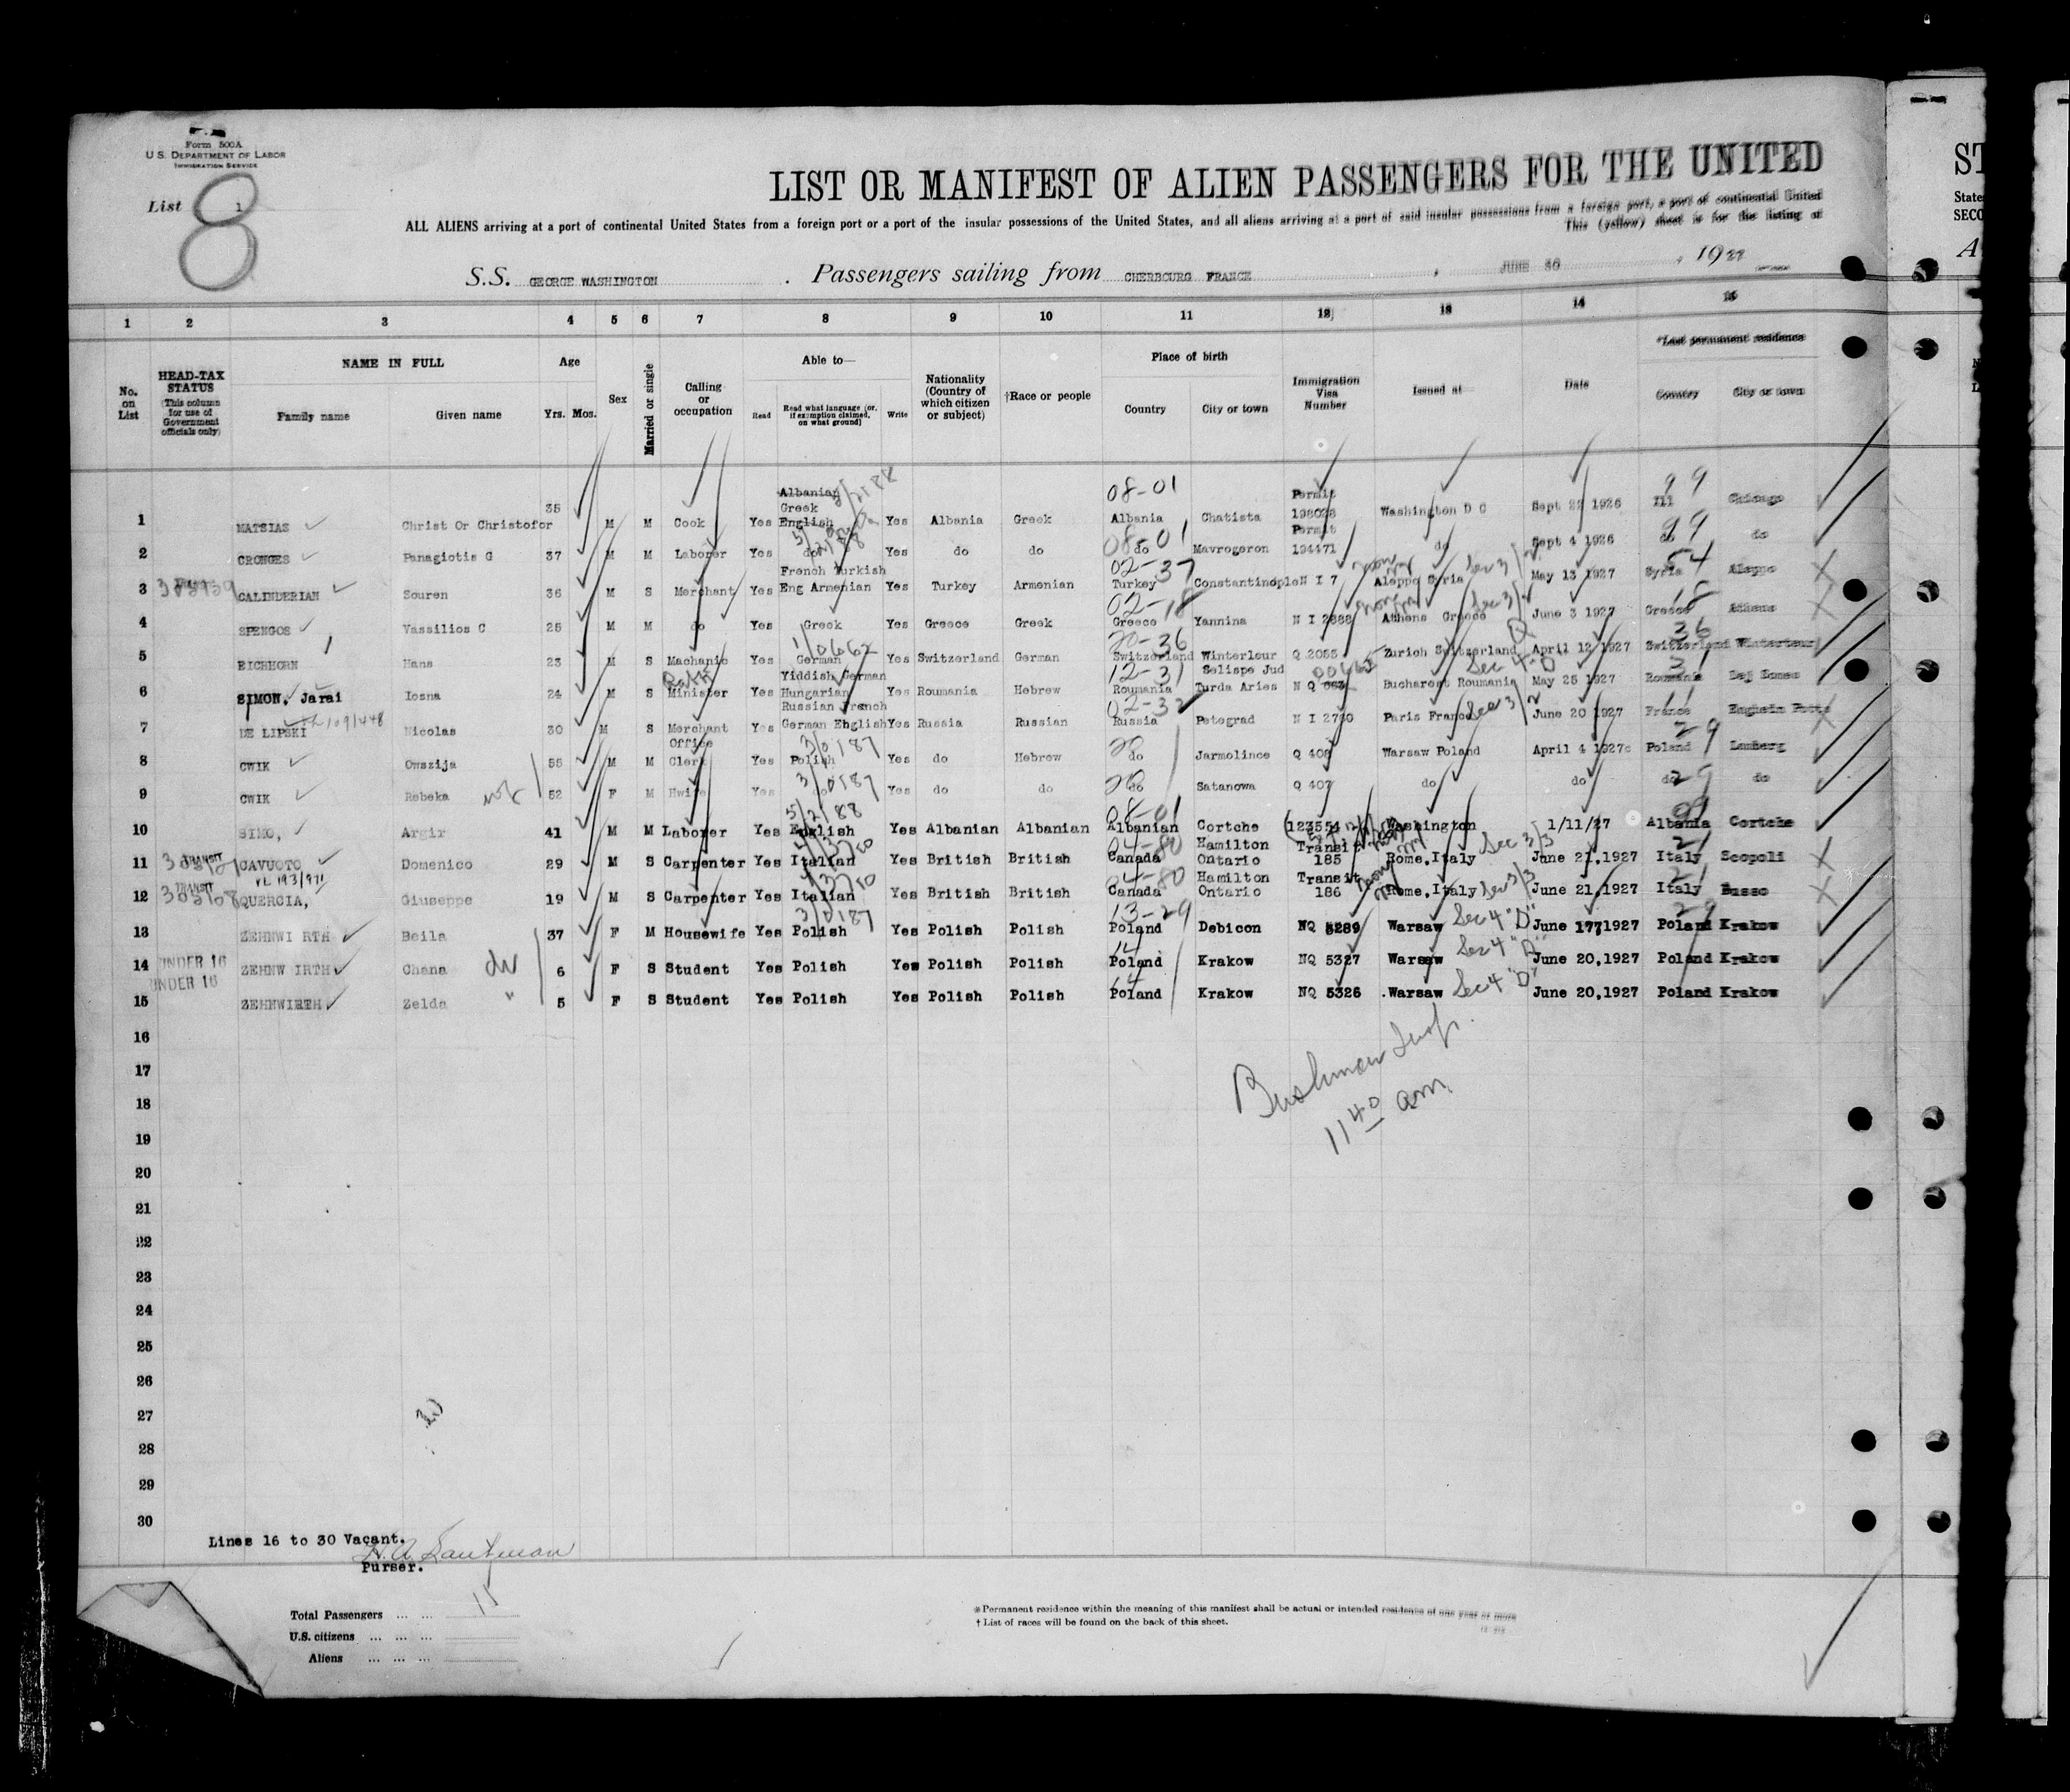 Form 500A
U.S. DEPARTMENT OF LABOR
IMMIGRATION SERVICE
List 1
8
LIST OR MANIFEST OF ALIEN PASSENGERS FOR THE UNITED
ALL ALIENS arriving at a port of continental United States from a foreign port or a port of the insular possessions of the United States, and all aliens arriving at a port of said insular possessions from a foreign port, a port of continental United
This (yellow) sheet is for the listing of
S.S. GEORGE WASHINGTON . Passengers sailing from CHERBOURG FRANCE , JUNE 30 , 1927
1 2 3 4 5 6 7 8 9 10 11 12 13 14 15
No. on List
HEAD-TAX STATUS (This column for use of Government officials only)
NAME IN FULL
Family name Given name
Age
Yrs. Mos.
Sex
Married or single
Calling or occupation
Able to—
Read Read what language (or, if exemption claimed, on what ground) Write
Nationality (Country of which citizen or subject)
†Race or people
Place of birth
Country City or town
Immigration Visa Number
Issued at
Date
*Last permanent residence
Country City or town
Albanian 5/2188 08-01 Permit 99
35 Greek
1 MATSIAS Christ Or Christofor M M Cook Yes English Yes Albania Greek Albania Chatista 198028 Washington D C Sept 22 1926 Ill Chicago
5/2188 08-01 Permit 99
2 CRONGES Panagiotis G 37 M M Laborer Yes do Yes do do do Mavrogeron 194471 do Sept 4 1926 do do
French Turkish 02-37 Sec 3/2 54
3 CALINDERIAN Souren 36 M S Merchant Yes Eng Armenian Yes Turkey Armenian Turkey Constantinople N I 7 Aleppo Syria May 13 1927 Syria Aleppo
02-18 Sec 3/2 18
4 SPENGOS Vassilios C 25 M M do Yes Greek Yes Greece Greek Greece Yannina N I 2888 Athens Greece June 3 1927 Greece Athens
1/0662 20-36 Q 36
5 EICHHORN Hans 23 M S Machanic Yes German Yes Switzerland German Switzerland Winterleur Q 2055 Zurich Switzerland April 12 1927 Switzerland Winterteur
Rabbi Yiddish German 12-31 Selispe Jud 00662 Sec 4-D 31
6 SIMON, Jarai Iosna 24 M S Minister Yes Hungarian Yes Roumania Hebrew Roumania Turda Aries N Q 663 Bucharest Roumania May 25 1927 Roumania Dej Somes
Russian French 02-32 Sec 3/2 11
7 DE LIPSKI Nicolas 30 M S Merchant Yes German English Yes Russia Russian Russia Petograd N I 2780 Paris France June 20 1927 France
Office 3/0187 29
8 CWIK Owszija 55 M M Clerk Yes Polish Yes do Hebrew do Jarmolince Q 408 Warsaw Poland April 4 1927 Poland Lemberg
3/0187 29
9 CWIK Rebeka 52 F M Hwife Yes do Yes do do do Satanowa Q 407 do do do do
5/2188 08-01
10 SIMO, Argir 41 M M Laborer Yes English Yes Albanian Albanian Albanian Cortche 123554 Washington 1/11/27 Albania Cortche
TRANSIT 04-80 Hamilton Transit Sec 3/3 21
11 CAVUOTO Domenico 29 M S Carpenter Yes Italian Yes British British Canada Ontario 185 Rome,Italy June 21,1927 Italy Scopoli
TRANSIT VL 193/971 04-80 Hamilton Transit Sec 3/3 21
12 QUERCIA, Giuseppe 19 M S Carpenter Yes Italian Yes British British Canada Ontario 186 Rome,Italy June 21,1927 Italy Busso
3/0187 13-29 Sec 4 "D" 29
13 ZEHNWI RTH Beila 37 F M Housewife Yes Polish Yes Polish Polish Poland Debicon NQ 5289 Warsaw June 17 1927 Poland Krakow
UNDER 16 Sec 4 "D"
14 ZEHNW IRTH Chana 6 F S Student Yes Polish Yes Polish Polish Poland Krakow NQ 5327 Warsaw June 20,1927 Poland Krakow
UNDER 16 Sec 4 "D"
15 ZEHNWIRTH Zelda " 5 F S Student Yes Polish Yes Polish Polish Poland Krakow NQ 5326 .Warsaw June 20,1927 Poland Krakow
16
17
Bushman Insp.
18
11 40 am.
19
20
21
22
23
24
25
26
27
28
29
30
Lines 16 to 30 Vacant.
Purser.
Total Passengers ... ... 15
U.S. citizens ... ... ...
Aliens ... ... ...
*Permanent residence within the meaning of this manifest shall be actual or intended residence of one year or more
† List of races will be found on the back of this sheet.
ST
States
SECO
A